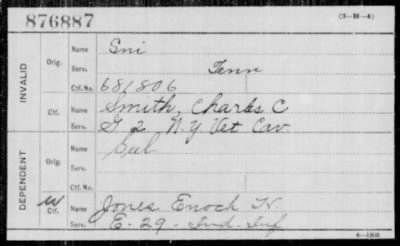 876887
(3—B—4)
INVALID
Orig. Name Smi
Serv. Tenn
Ctf. No. 681806
Ctf. Name Smith, Charles C
Serv. G 2 N.Y. Vet Cav
DEPENDENT
Orig. Name
Serv.
W Ctf. Name Jones Enoch H.
Serv. E - 29 - Ind. Inf